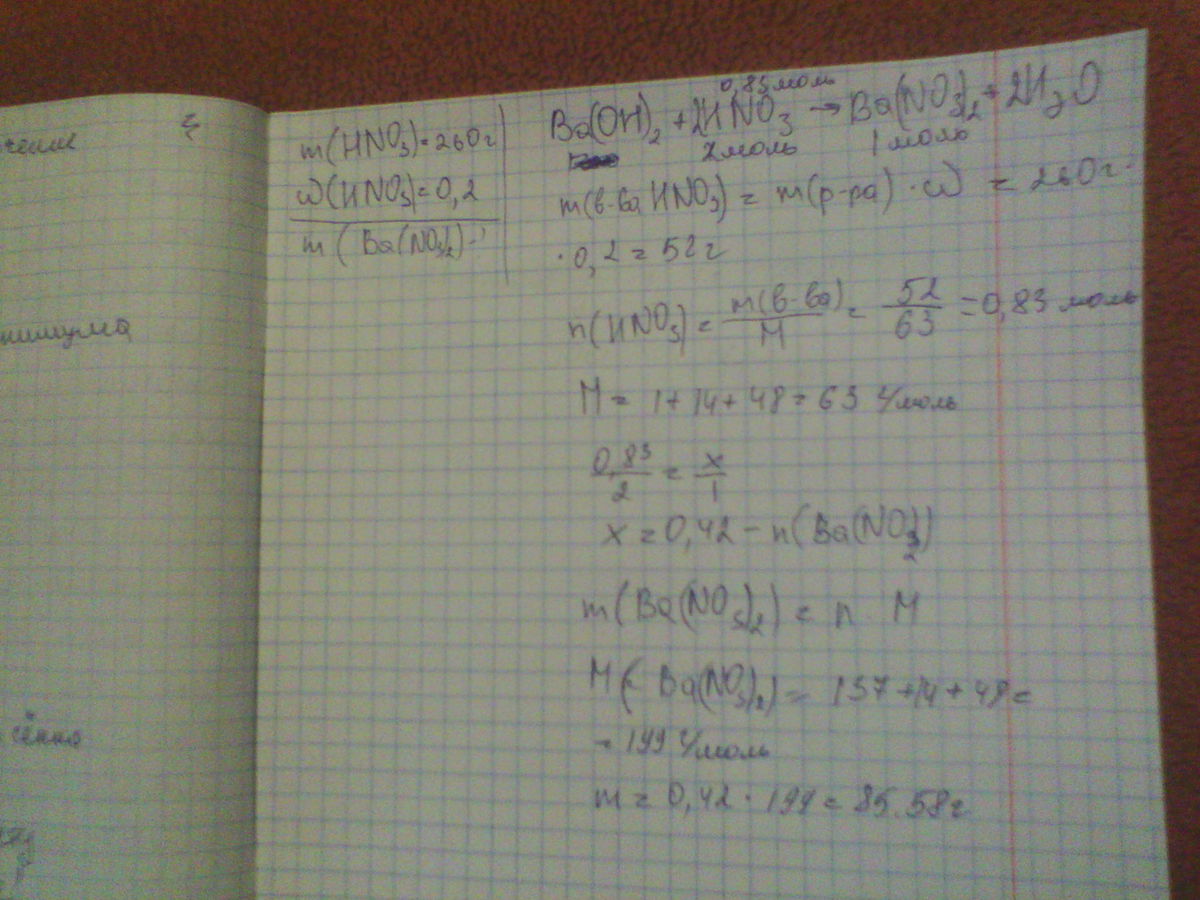 m(HNO₃)=260г
ω(HNO₃)=0,2
m(Ba(NO₃)₂)-?
0,83 моль
Ba(OH)₂ + 2HNO₃ → Ba(NO₃)₂ + 2H₂O
2 моль 1 моль
m(в-ва HNO₃) = m(р-ра) · ω = 260г ·
· 0,2 = 52 г
n(HNO₃) = m(в-ва)/M = 52/63 = 0,83 моль
M = 1+14+48 = 63 г/моль
0,83/2 = x/1
x = 0,42 – n(Ba(NO₃)₂)
m(Ba(NO₃)₂) = n · M
M(Ba(NO₃)₂) = 137+14+48 =
= 199 г/моль
m = 0,42 · 199 = 85.58г